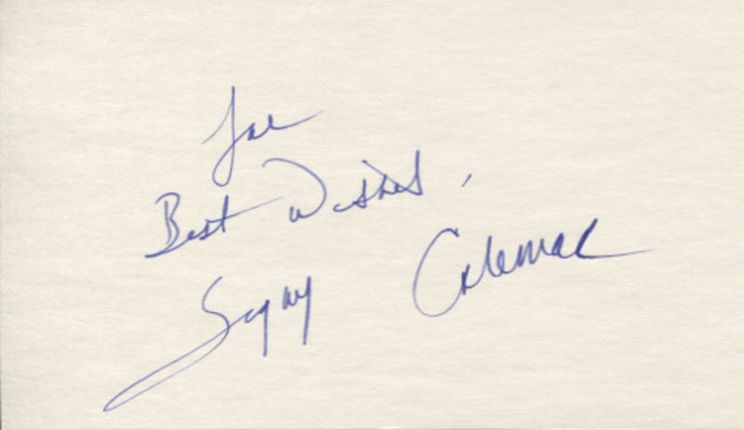 Joe
Best Wishes,
Signy Coleman